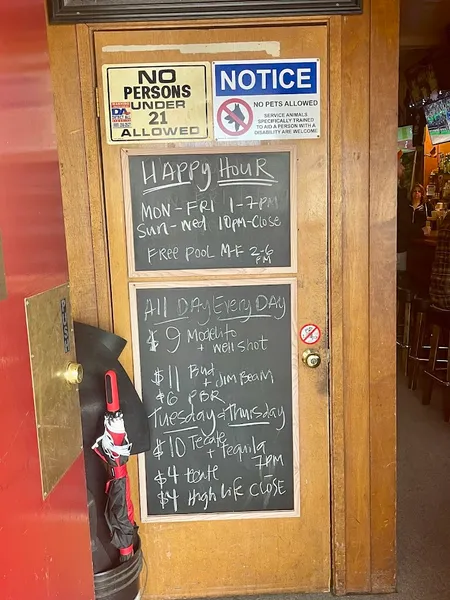 NO
PERSONS
UNDER
21
ALLOWED
NOTICE
NO PETS ALLOWED
SERVICE ANIMALS
SPECIFICALLY TRAINED
TO AID A PERSON WITH A
DISABILITY ARE WELCOME
HAPPY HOUR
MON - FRI 1-7PM
SUN - WED 10PM-CLOSE
FREE POOL M-F 2-6
PM
All DAY Every DAY
$9 Modelito
+ well shot
$11 Bud
+ Jim Beam
$6 PBR
Tuesday & Thursday
$10 Tecate
+ Tequila
$4 tecate 7PM
$4 High Life CLOSE